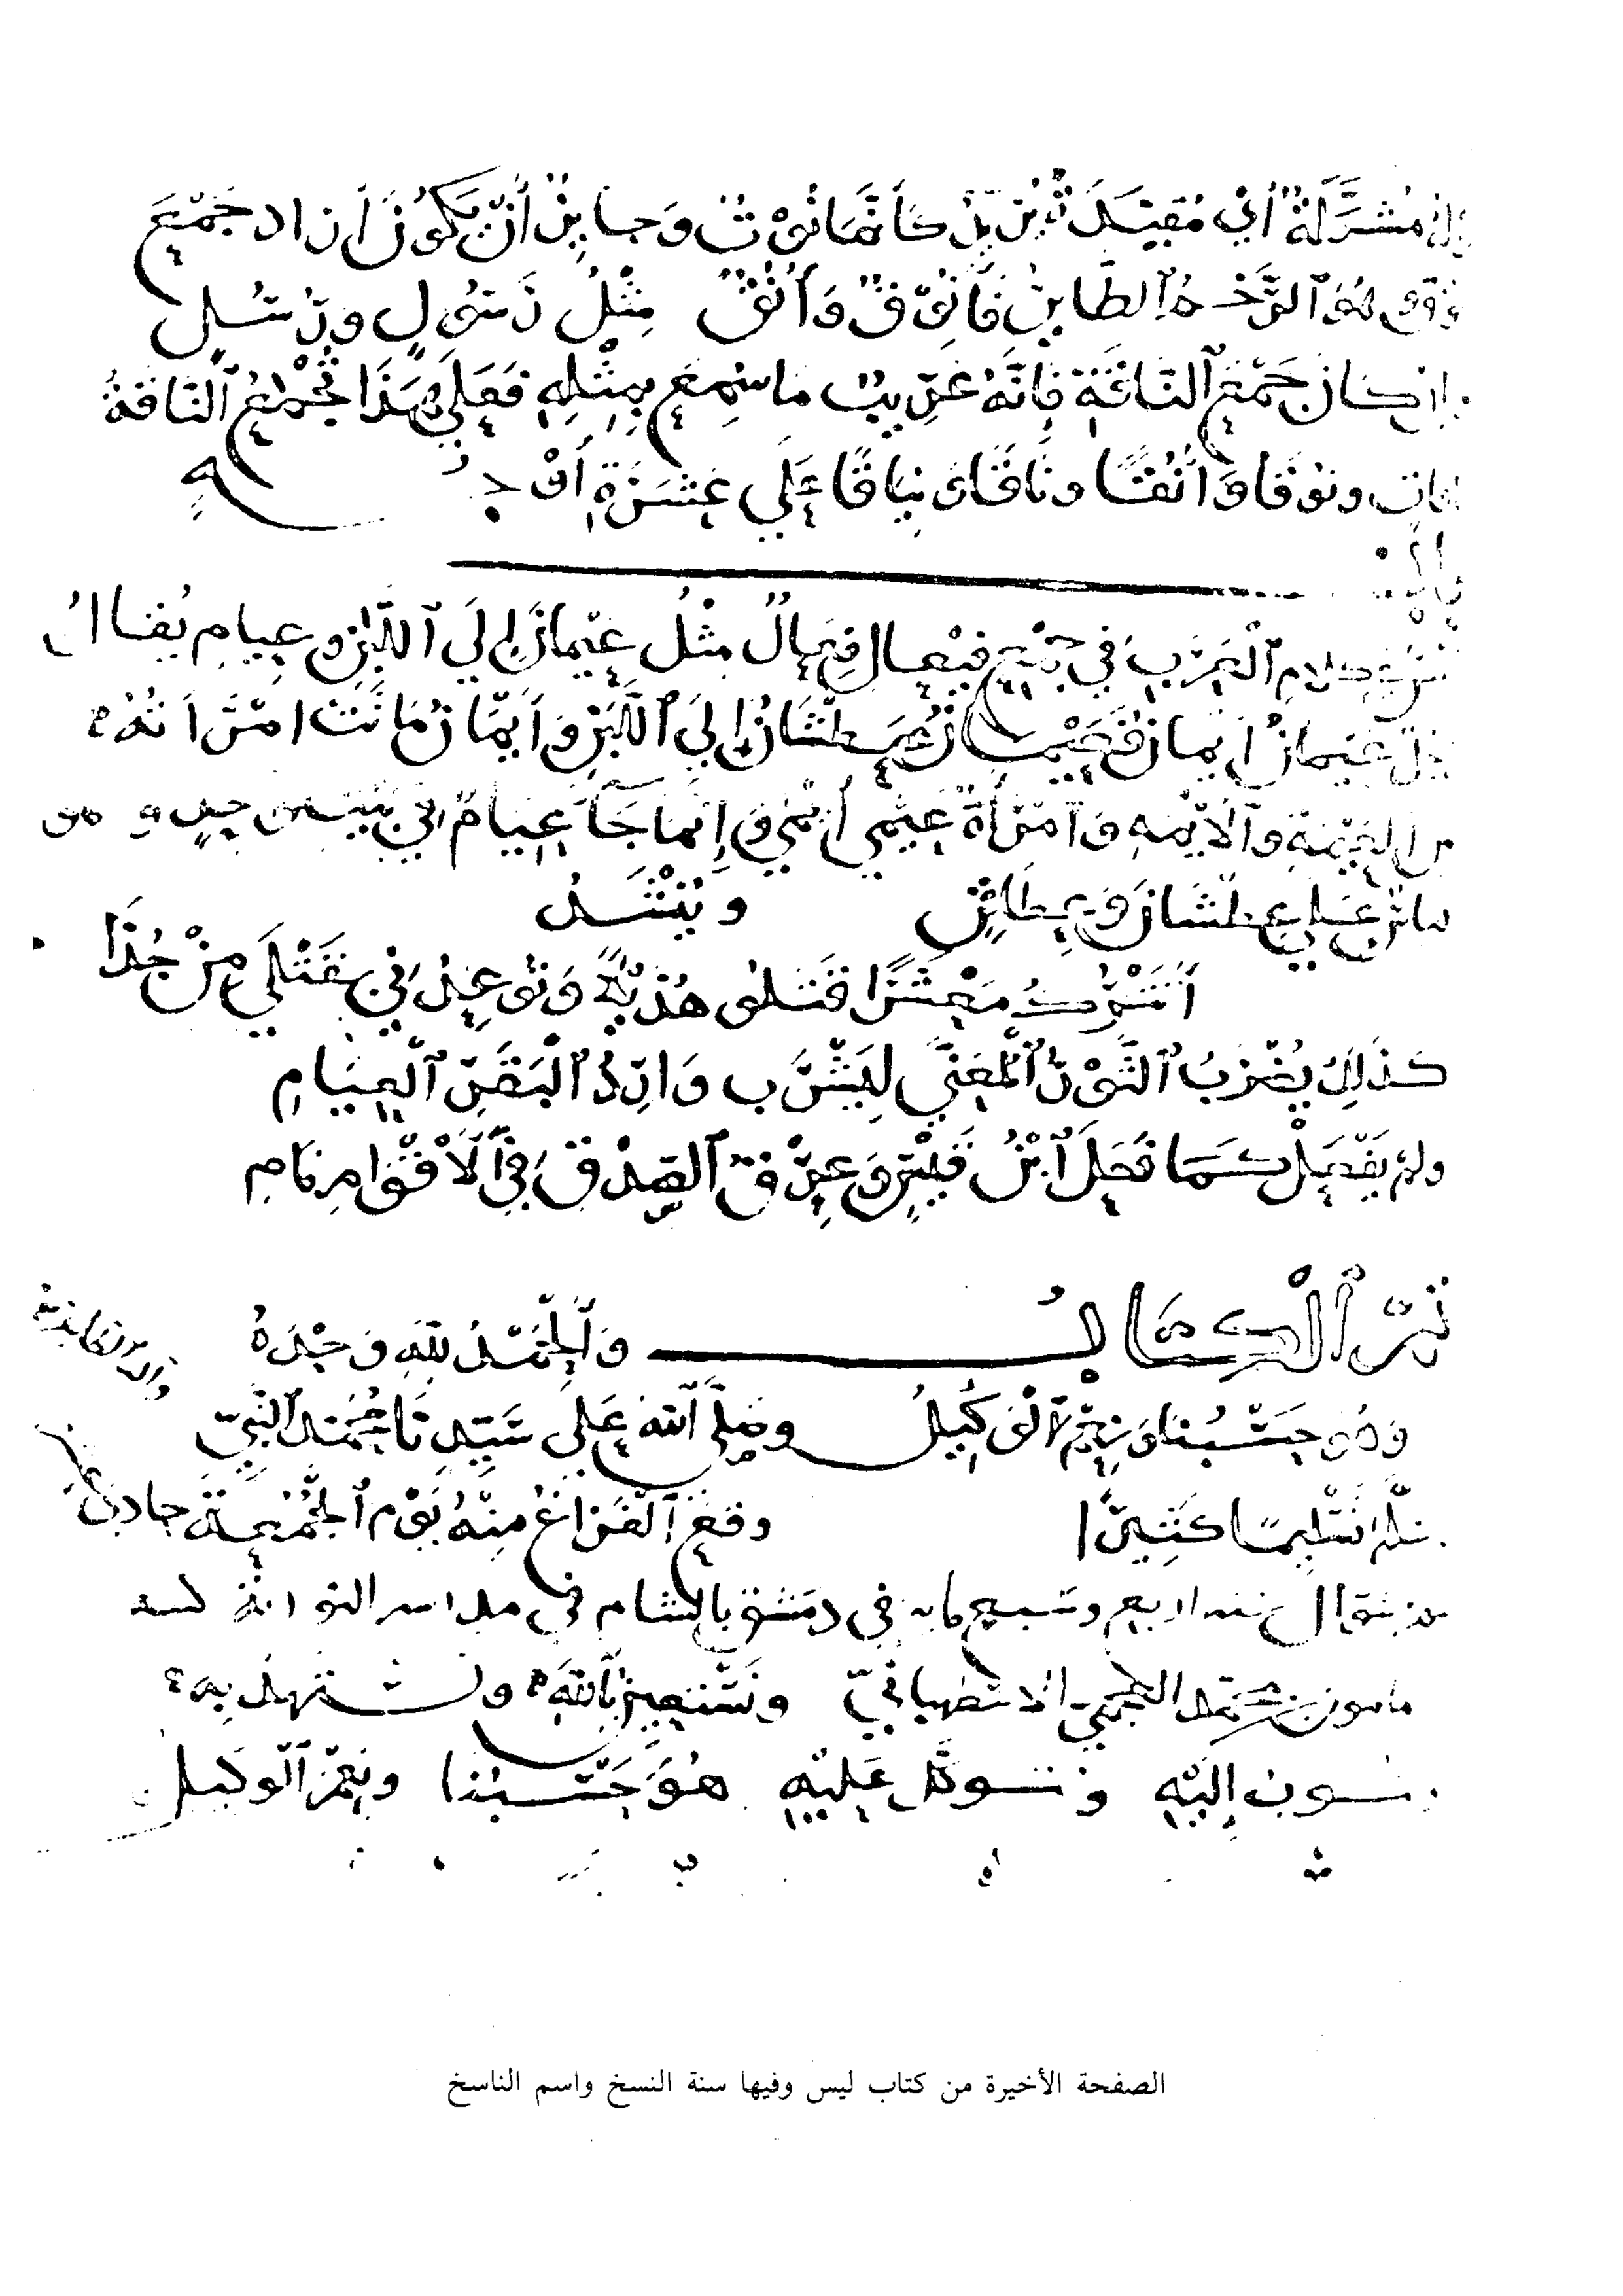 أي مقبلة مدبرة كأنما نوت وجايز أن يكون أراد جمع
هو الرخم الطاير فأنوق وأنق مثل رسول ورسل
وإن كان جمع الناقة فإنه غريب ما سمع بمثله فعلى هذا تجمع الناقة
ونوقا وأنقا وناقا ونياقا على عشرة أوجه
كلام العرب في جمع فيعال فعال مثل عيمان إلى اللبن وعيام يقال
عيمان أيمان فعيمان عطشان إلى اللبن وأيمان ماتت امرأته
من العيمة والأيمة وامرأة عيمى أيمى وإنما جاء عيام في بيت
على عطشان وعطاش وينشد
أتترك معشرا قتلوا هذيلا وتوعدني بقتلي من جذا
كذلك يضرب الثور المعنى ليشرب وارد البقر العيام
ولم يفعل كما فعل ابن قيس وعرق الصدق في الأقوام نام
تم الكتاب والحمد لله وحده
وهو حسبنا ونعم الوكيل وصلى الله على سيدنا محمد النبي
وسلم تسليما كثيرا وقع الفراغ منه يوم الجمعة حادي
شوال سنة اربع وسبع مايه في دمشق بالشام في
محمد العجمي الاصبهاني ونستعين بالله ونستهديه
إليه ونتوكل عليه هو حسبنا ونعم الوكيل
الصفحة الأخيرة من كتاب ليس وفيها سنة النسخ واسم الناسخ